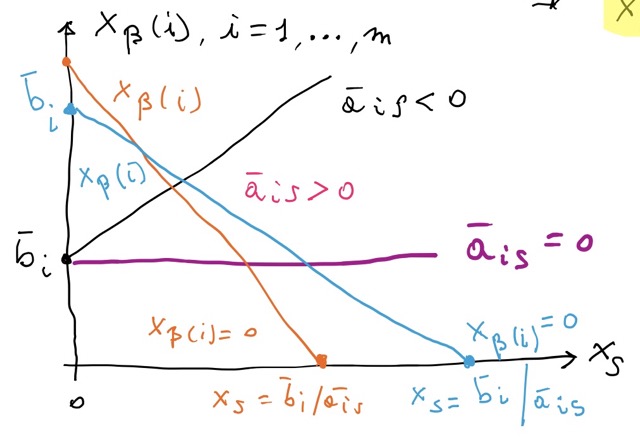 x
x_β(i), i=1,...,m
b̄_i
x_β(i)
ā_is<0
x_β(i)
ā_is>0
b̄_i
ā_is = 0
x_β(i)=0
x_β(i)=0
x_s
0
x_s = b̄_i/ā_is
x_s= b̄_i/ā_is